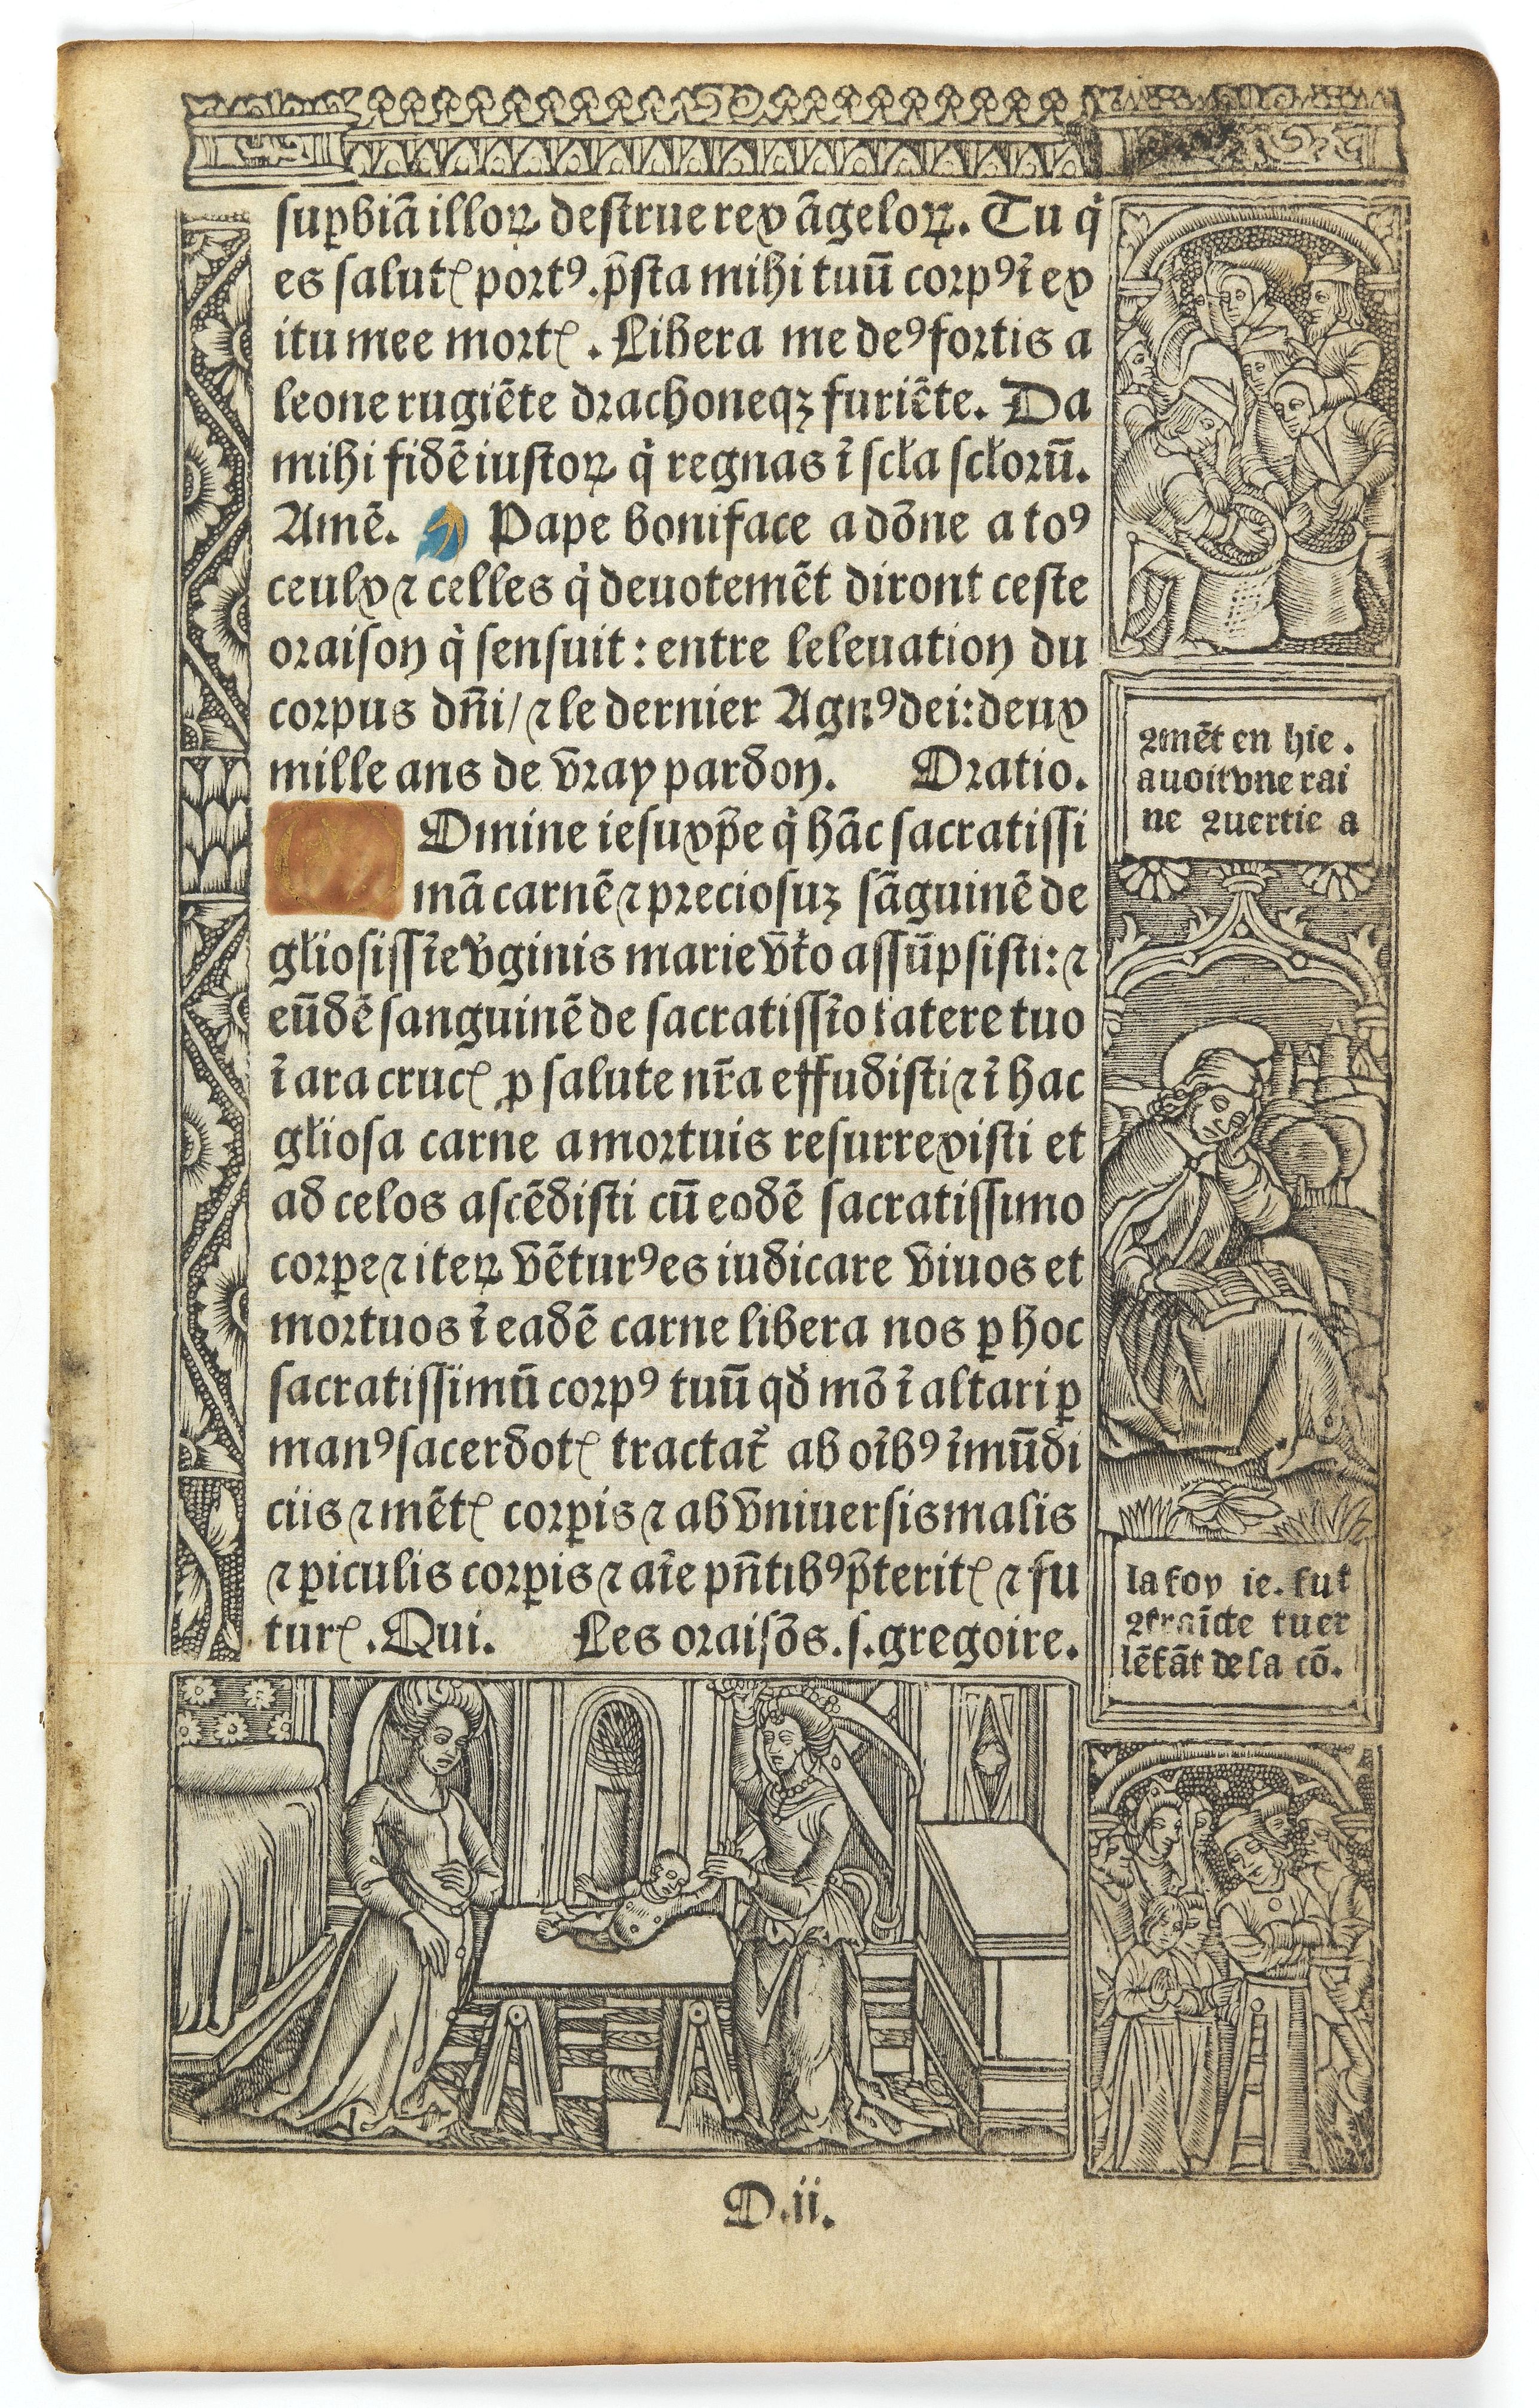 supbiā illoꝝ destrue rex āgeloꝝ. Tu q̇
es salutꝭ portꝰ. p̄sta mihi tuū corpꝰ ī ex
itu mee mortꝭ. Libera me deꝰ fortis a
leone rugiēte drachoneqꝫ furiēte. Da
mihi fidē iustoꝝ q̇ regnas ī scła scłorū.
Amē. Pape boniface a dōne a toꝰ
ceulx ⁊ celles q̇ deuotemēt diront ceste
oraison q̇ sensuit: entre leleuation du
corpus dn̄i/ ⁊ le dernier Agnꝰ dei: deux
mille ans de v̄ray pardon. Oratio.
Omine iesu xp̄e q̇ hāc sacratissi
mā carnē ⁊ preciosuꝫ sāguinē de
głiosissīe v̇ginis marie v̄to assūpsisti: ⁊
eūdē sanguinē de sacratissīo latere tuo
ī ara crucꝭ ꝓ salute nr̄a effudisti ⁊ ī hac
głiosa carne a mortuis resurrexisti et
ad celos ascēdisti cū eodē sacratissimo
corꝑe ⁊ iteꝝ v̄ēturꝰ es iudicare viuos et
mortuos ī eadē carne libera nos ꝑ hoc
sacratissimū corpꝰ tuū qđ mō ī altari ꝑ
manꝰ sacerdotꝭ tractat̄ ab oībꝰ īmūdi
ciis ⁊ mētꝭ corꝑis ⁊ ab vniuersis malis
⁊ ꝑiculis corꝑis ⁊ aīe pn̄tibꝰ p̄teritꝭ ⁊ fu
turꝭ. Qui. Les oraisōs. s. gregoire.
ꝯmēt en hie.
auoit vne rai
ne ꝯuertie a
la foy ie. fut
ꝯtraīcte tuer
lēfāt de sa cō.
D.ii.